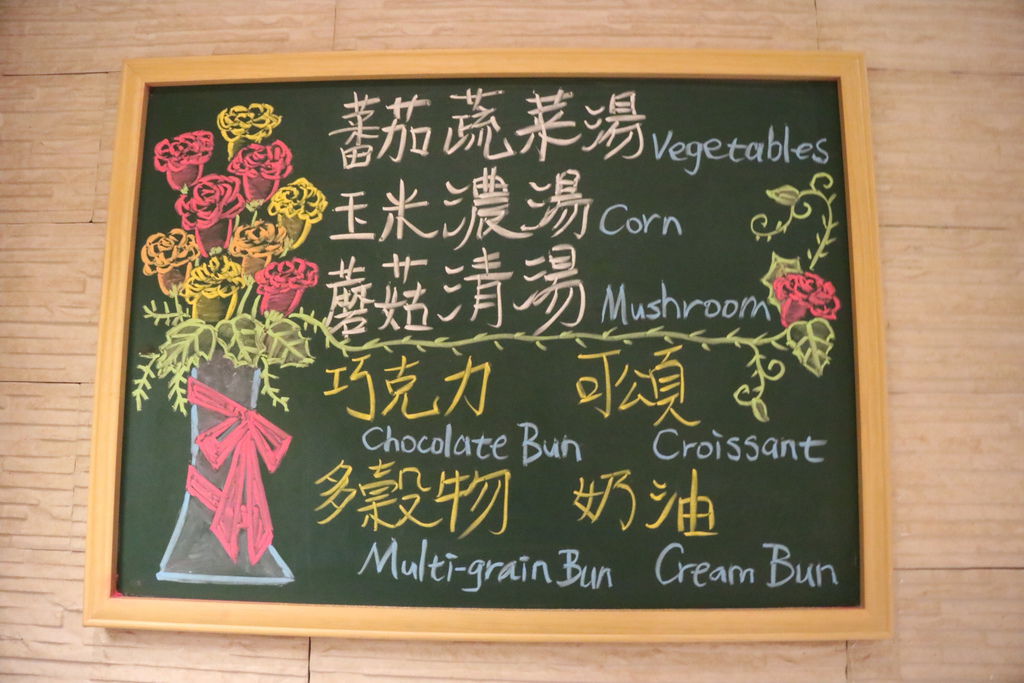 蕃茄蔬菜湯 Vegetables
玉米濃湯 Corn
蘑菇清湯 Mushroom
巧克力 可頌
Chocolate Bun Croissant
多穀物 奶油
Multi-grain Bun Cream Bun